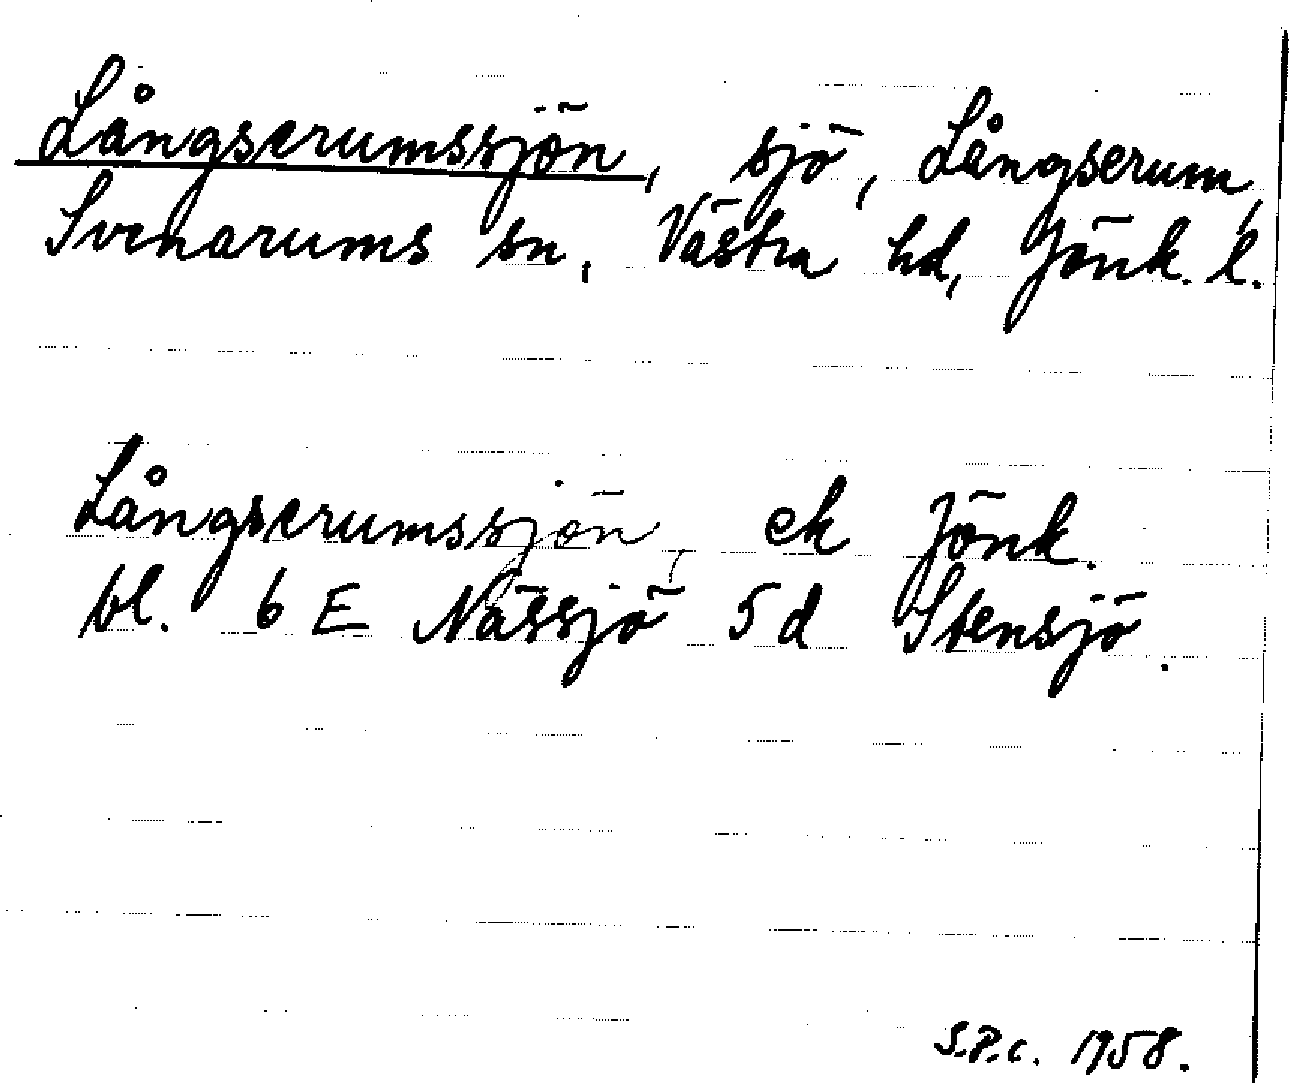 Långserumssjön, sjö, Långserum,
Svenarums sn, Västra hd, Jönk. l.
Långserumssjön, ek Jönk.
bl. 6 E Nässjö 5d Stensjö.
S.P.c. 1958.